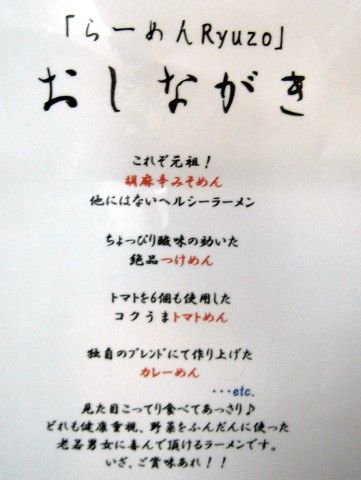 「らーめんRyuzo」
おしながき
これぞ元祖！
胡麻辛みそめん
他にはないヘルシーラーメン
ちょっぴり酸味の効いた
絶品つけめん
トマトを6個も使用した
コクうまトマトめん
独自のブレンドにて作り上げた
カレーめん
・・・etc.
見た目こってり食べてあっさり♪
どれも健康重視、野菜をふんだんに使った
老若男女に喜んで頂けるラーメンです。
いざ、ご賞味あれ！！